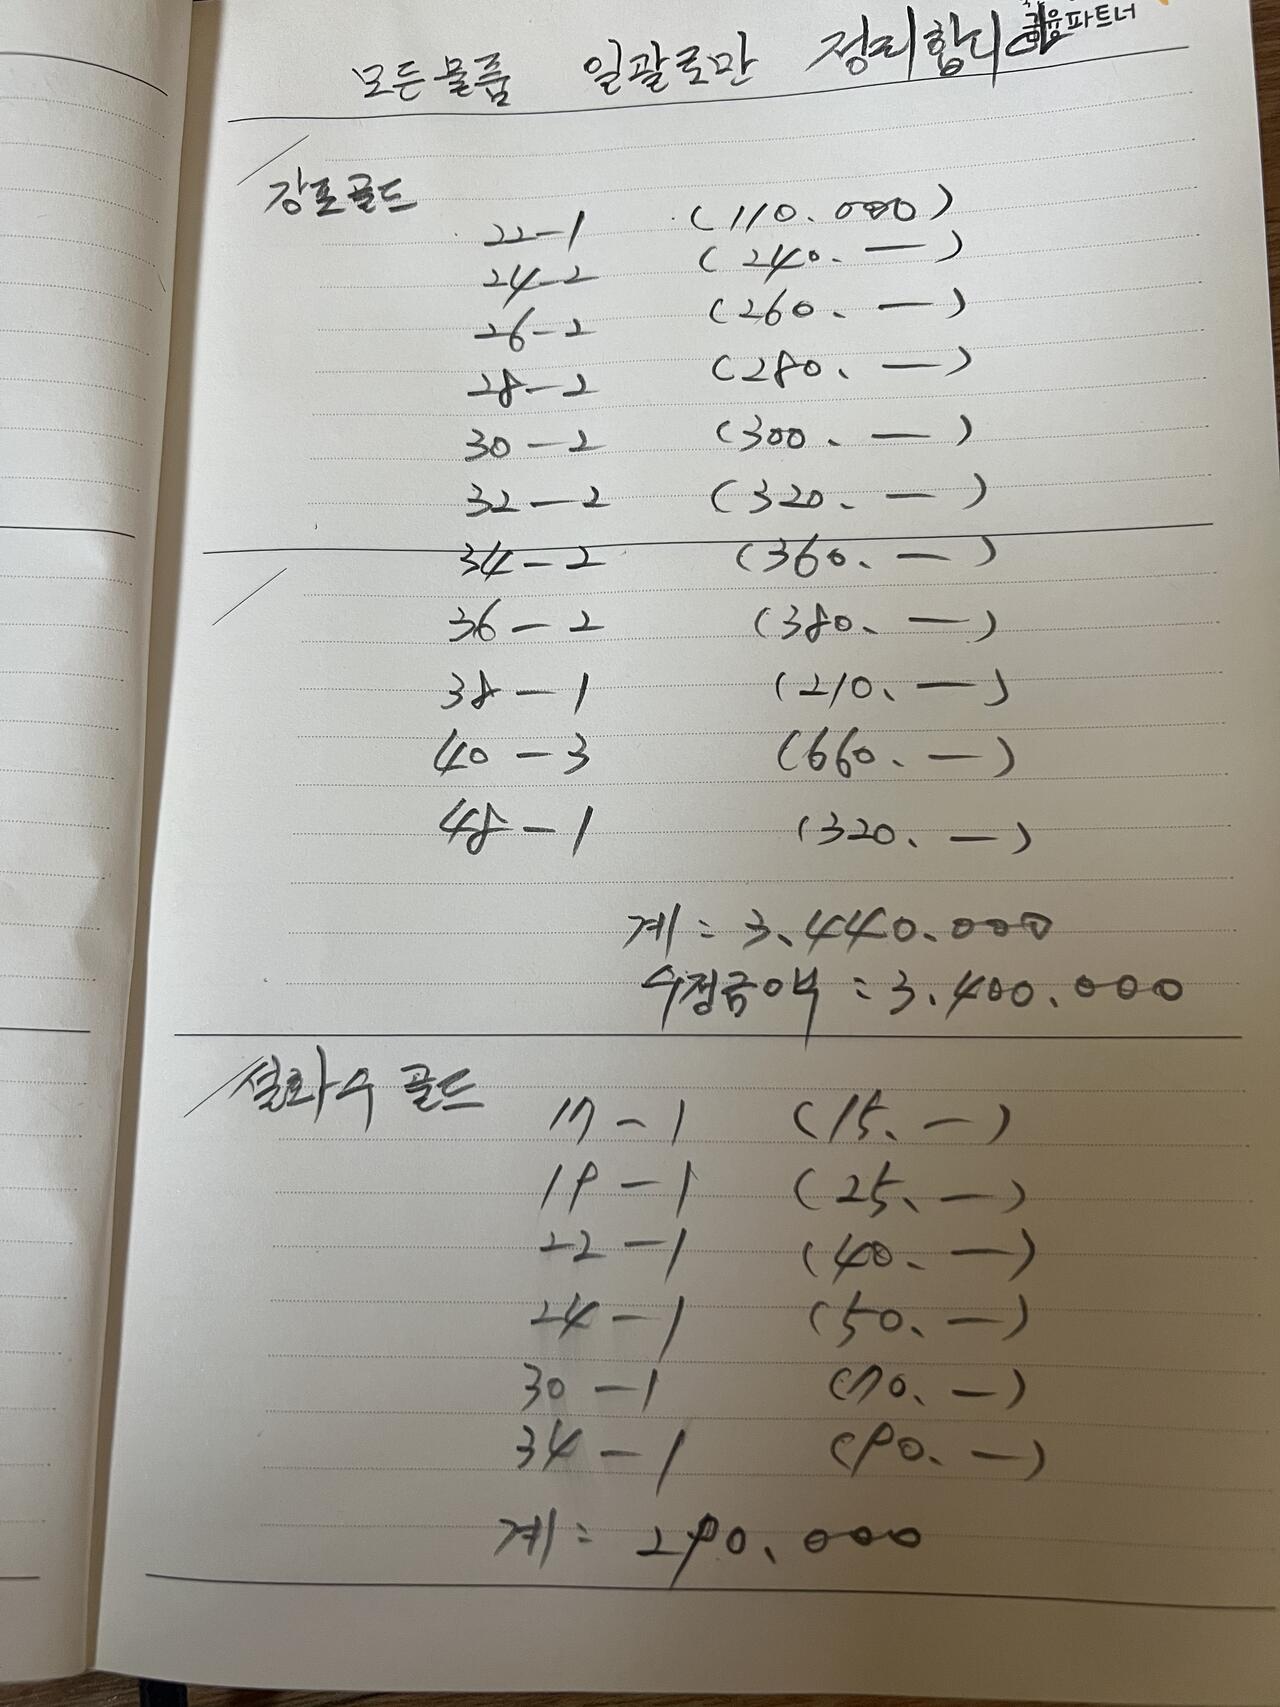 금융파트너
모든물품 일괄로만 정리합니다
강포골드
22-1 (110.000)
24-2 (240.—)
26-2 (260.—)
28-2 (280.—)
30-2 (300.—)
32-2 (320.—)
34-2 (360.—)
36-2 (380.—)
38-1 (210.—)
40-3 (660.—)
48-1 (320.—)
계 : 3.440.000
수정금액 : 3.400.000
설화수골드
17-1 (15.—)
19-1 (25.—)
22-1 (40.—)
24-1 (50.—)
30-1 (70.—)
34-1 (90.—)
계 : 290.000